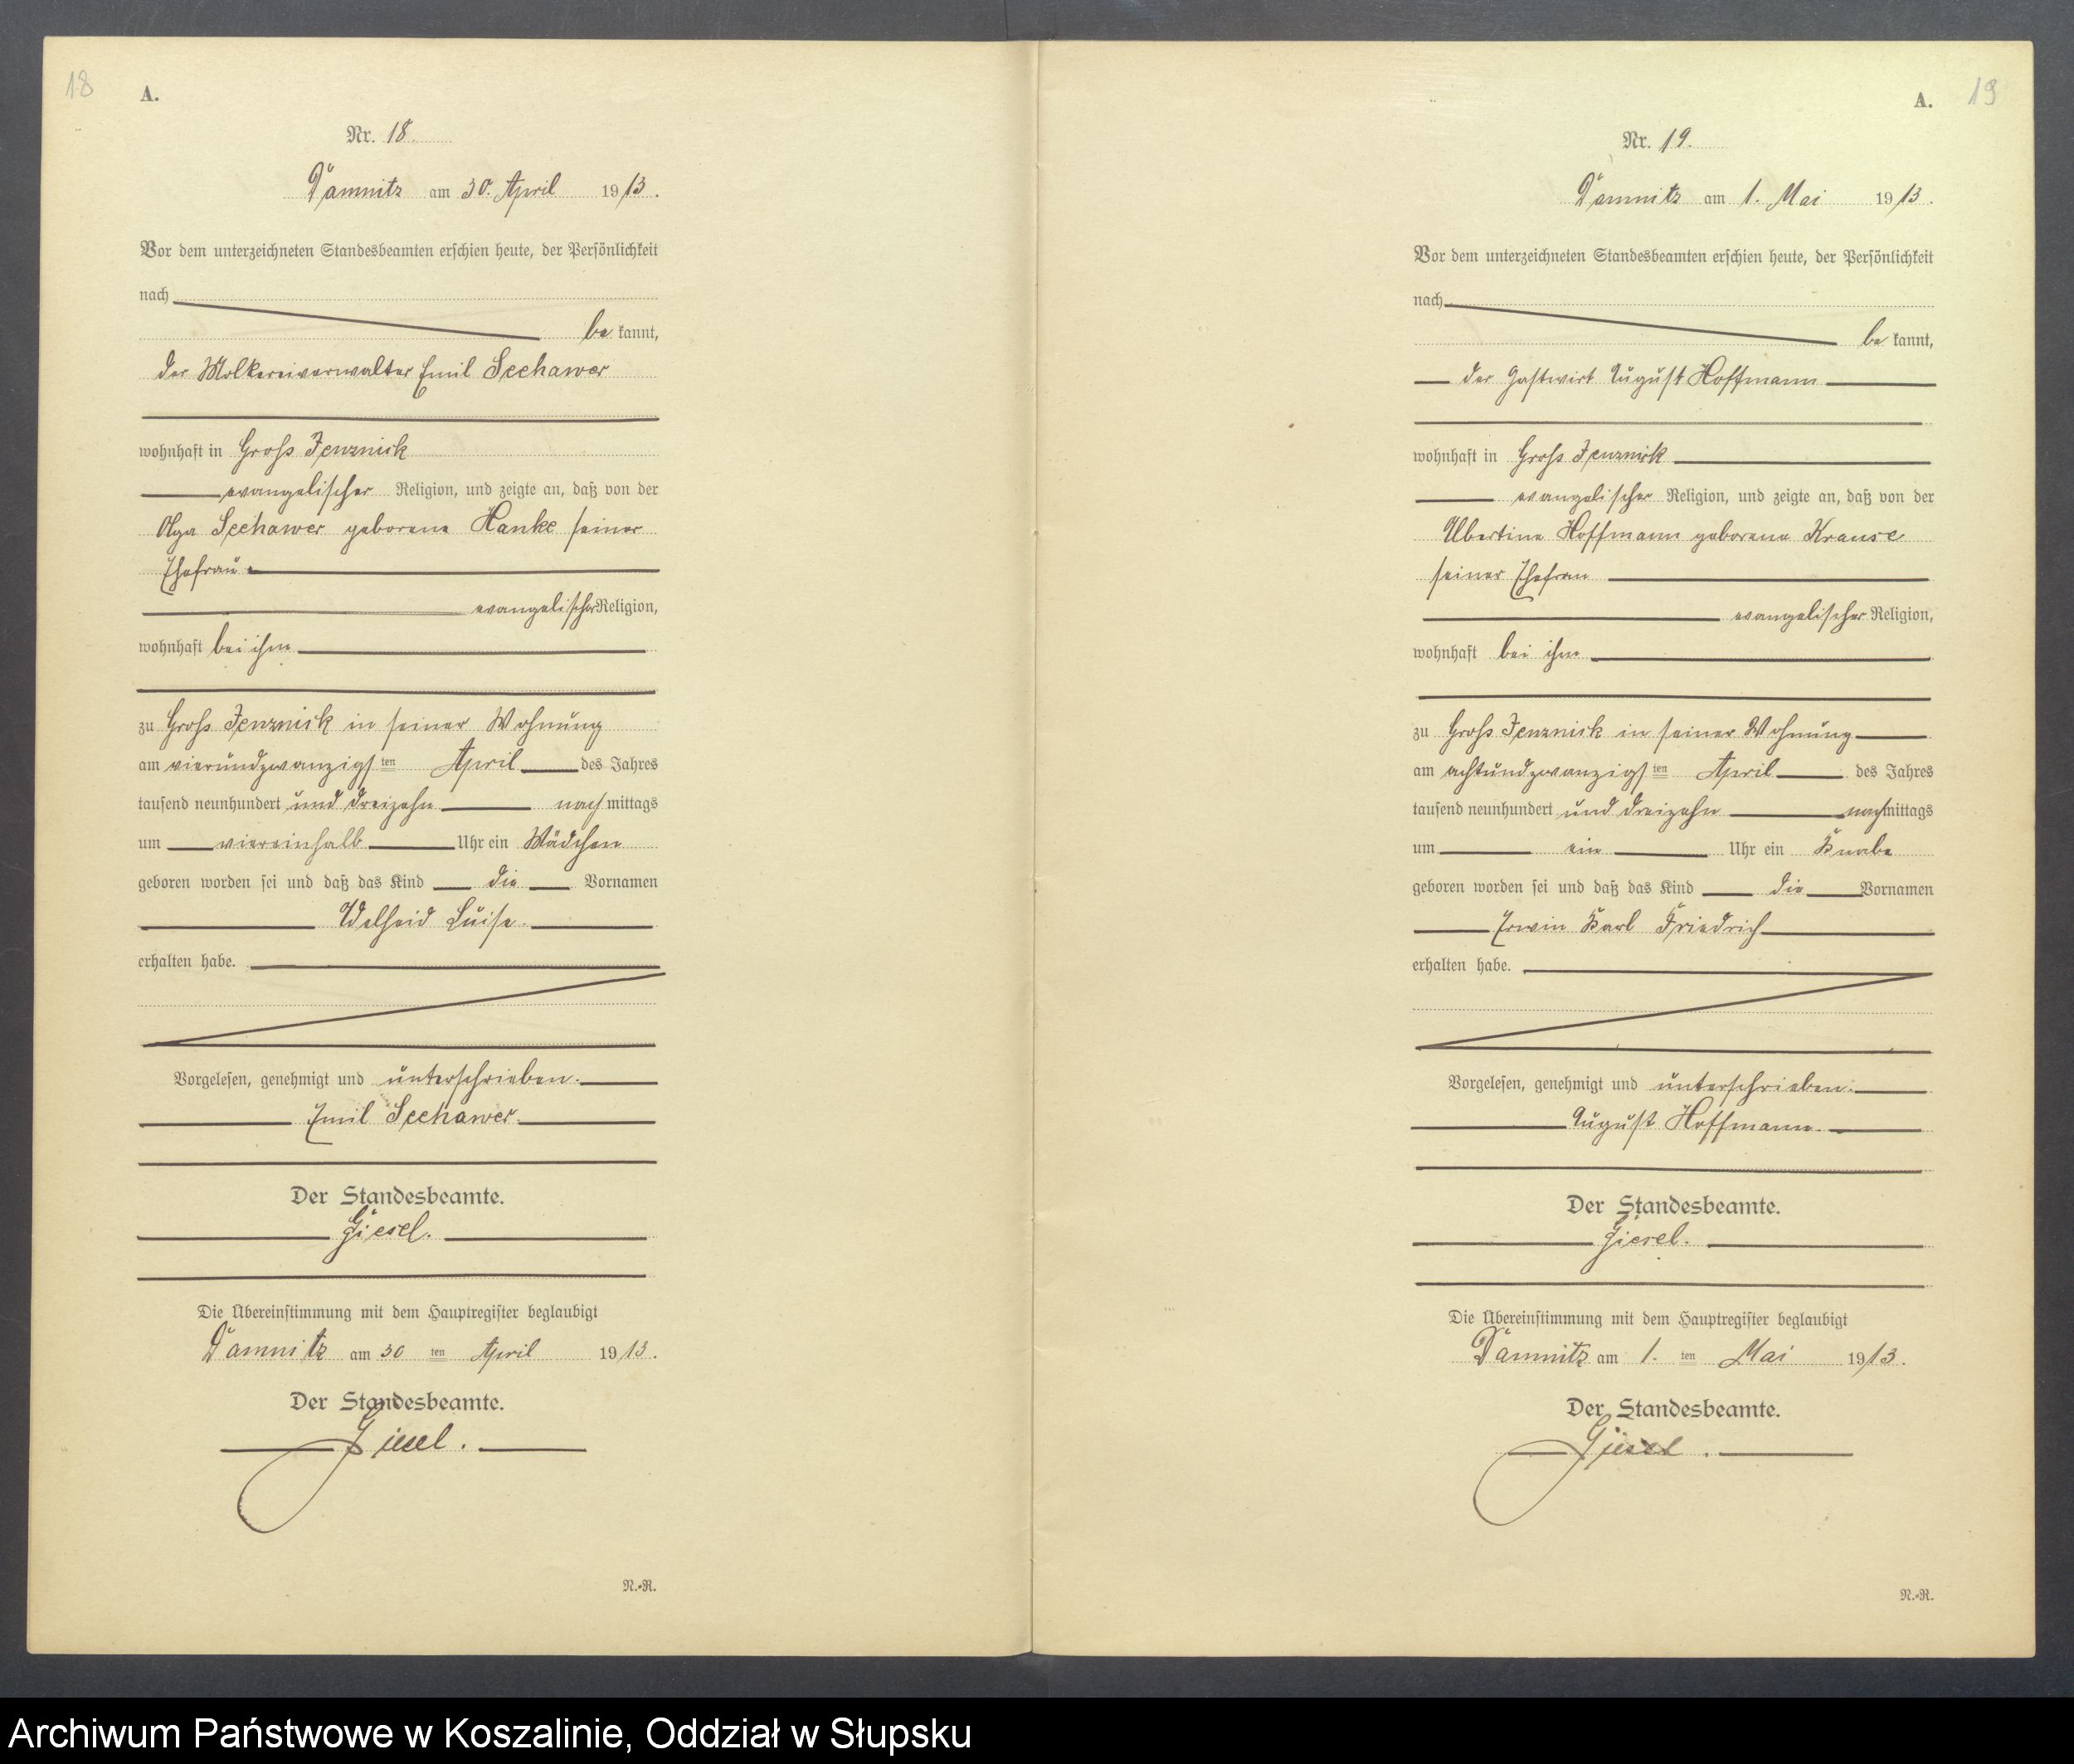 18
A.
Nr. 18.
Damnitz am 30. April 1913.
Vor dem unterzeichneten Standesbeamten erschien heute, der Persönlichkeit
nach
be kannt,
der Molkereiverwalter Emil Seehawer
wohnhaft in Gross Jenznick
evangelischer Religion, und zeigte an, daß von der
Olga Seehawer geborene Hanke seiner
Ehefrau
evangelischer Religion,
wohnhaft bei ihm
zu Gross Jenznick in seiner Wohnung
am vierundzwanzigsten April des Jahres
tausend neunhundert und dreizehn nachmittags
um viereinhalb Uhr ein Mädchen
geboren worden sei und daß das Kind die Vornamen
Adelheid Luise.
erhalten habe.
Vorgelesen, genehmigt und unterschrieben.
Emil Seehawer.
Der Standesbeamte.
Giesel.
Die Übereinstimmung mit dem Hauptregister beglaubigt
Damnitz am 30 ten April 1913.
Der Standesbeamte.
Giesel.
N.-R.
A. 19
Nr. 19.
Damnitz am 1. Mai 1913.
Vor dem unterzeichneten Standesbeamten erschien heute, der Persönlichkeit
nach
be kannt,
der Gastwirt August Hoffmann
wohnhaft in Gross Jenznick
evangelischer Religion, und zeigte an, daß von der
Albertine Hoffmann geborene Krause
seiner Ehefrau
evangelischer Religion,
wohnhaft bei ihm
zu Gross Jenznick in seiner Wohnung
am achtundzwanzigsten April des Jahres
tausend neunhundert und dreizehn nachmittags
um ein Uhr ein Knabe
geboren worden sei und daß das Kind die Vornamen
Erwin Karl Friedrich
erhalten habe.
Vorgelesen, genehmigt und unterschrieben.
August Hoffmann.
Der Standesbeamte.
Giesel.
Die Übereinstimmung mit dem Hauptregister beglaubigt
Damnitz am 1. ten Mai 1913.
Der Standesbeamte.
Giesel.
N.-R.
Archiwum Państwowe w Koszalinie, Oddział w Słupsku